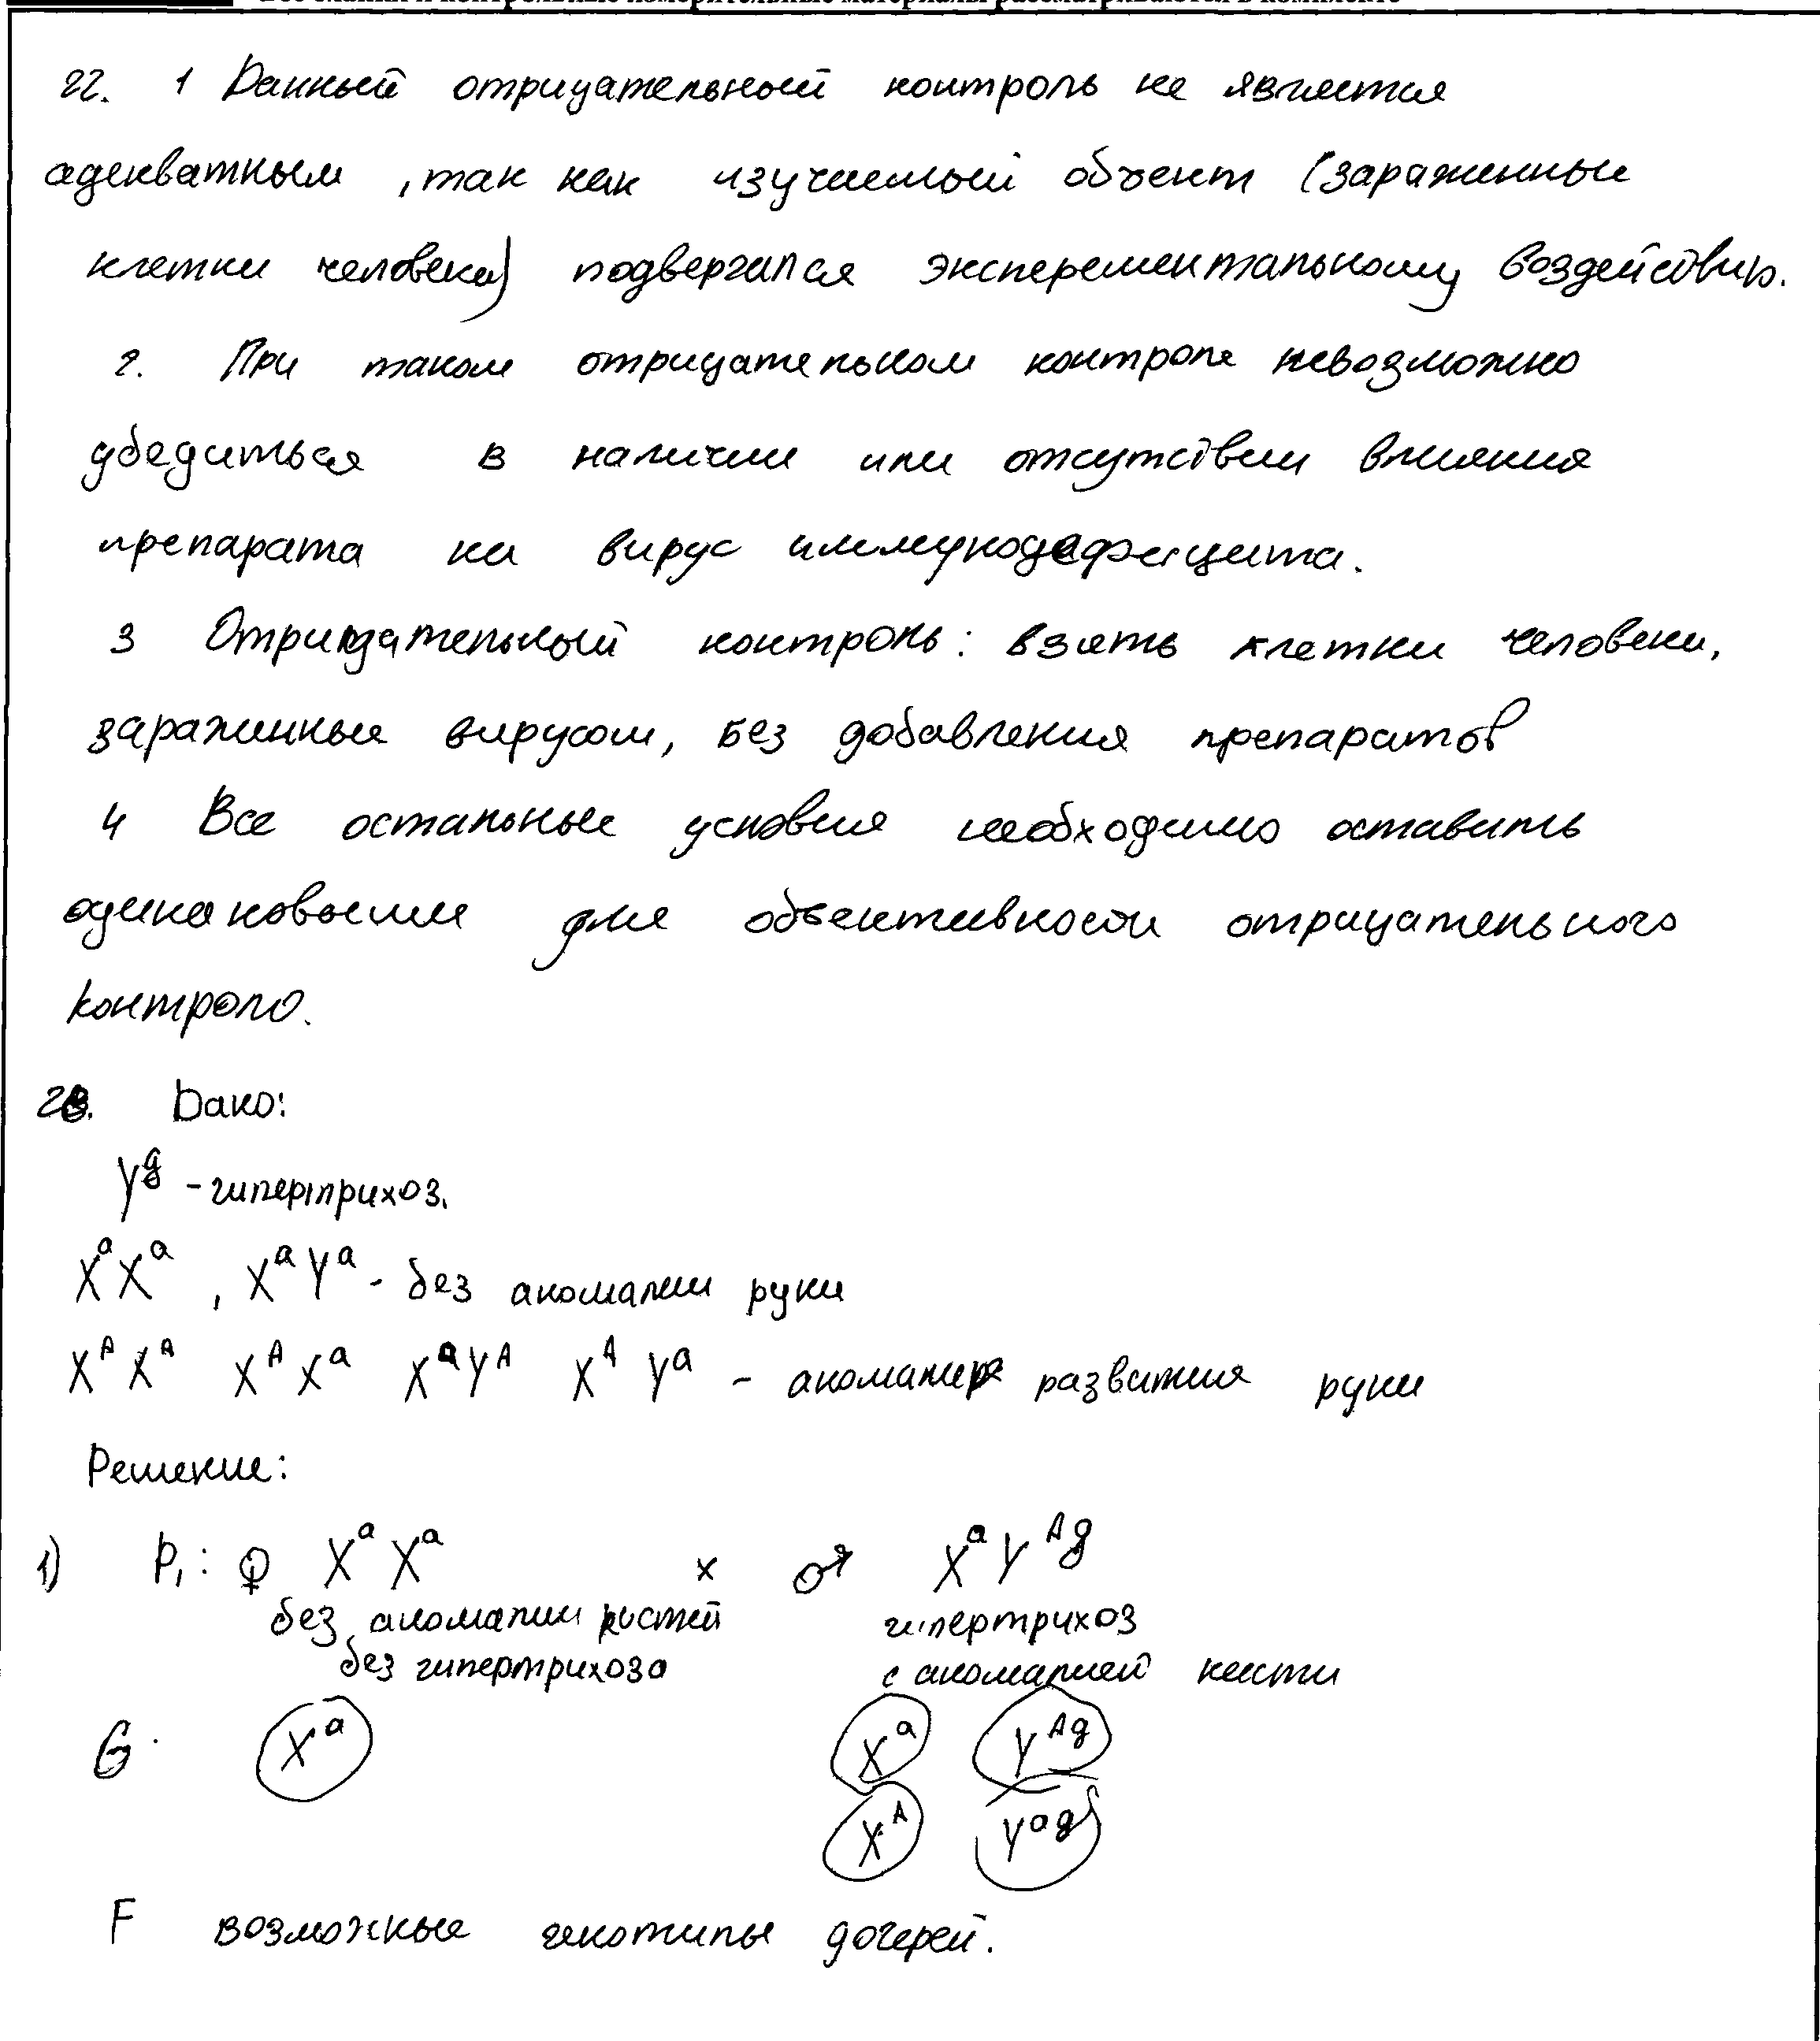 22. 1 Данный отрицательный контроль не является
адекватным, так как изучаемый объект (зараженные
клетки человека) подвергался эксперементальному воздействию.
2. При таком отрицательном контроле невозможно
убедиться в наличии или отсутствии влияния
препарата на вирус иммунодефицита.
3 Отрицательный контроль: взять клетки человека,
зараженные вирусом, без добавления препаратов
4 Все остальные условия необходимо оставить
одинаковыми для объективности отрицательного
контроля.
28. Дано:
Yᵍ - гипертрихоз.
XᵃXᵃ, XᵃYᵃ - без аномалии руки
XᴬXᴬ XᴬXᵃ XᵃYᴬ XᴬYᵃ - аномалия развития руки
Решение:
1) P₁: ♀ XᵃXᵃ x ♂ XᵃYᴬᵍ
без аномалии кистей гипертрихоз
без гипертрихоза с аномалией кисти
G: Xᵃ Xᵃ Yᴬᵍ
Xᴬ Yᵃᵍ
F возможные генотипы дочерей.